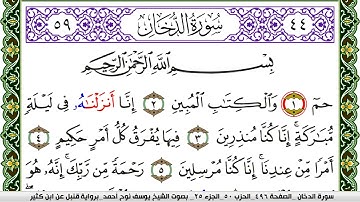 ٥٩ سُورَةُ الدُّخَانِ ٤٤
بِسْمِ اللَّهِ الرَّحْمَٰنِ الرَّحِيمِ
حمٓ ١ وَالْكِتَابِ الْمُبِينِ ٢ إِنَّا أَنزَلْنَاهُۥ فِي لَيْلَةٍ
مُّبَارَكَةٍ إِنَّا كُنَّا مُنذِرِينَ ٣ فِيهَا يُفْرَقُ كُلُّ أَمْرٍ حَكِيمٍ ٤
أَمْرًا مِّنْ عِندِنَا إِنَّا كُنَّا مُرْسِلِينَ ٥ رَحْمَةً مِّن رَّبِّكَ إِنَّهُۥ هُوَ
سورة الدخان _ الصفحة ٤٩٦ _ الحزب ٥٠ _ الجزء ٢٥ _ بصوت الشيخ يوسف نوح أحمد _ برواية قنبل عن ابن كثير